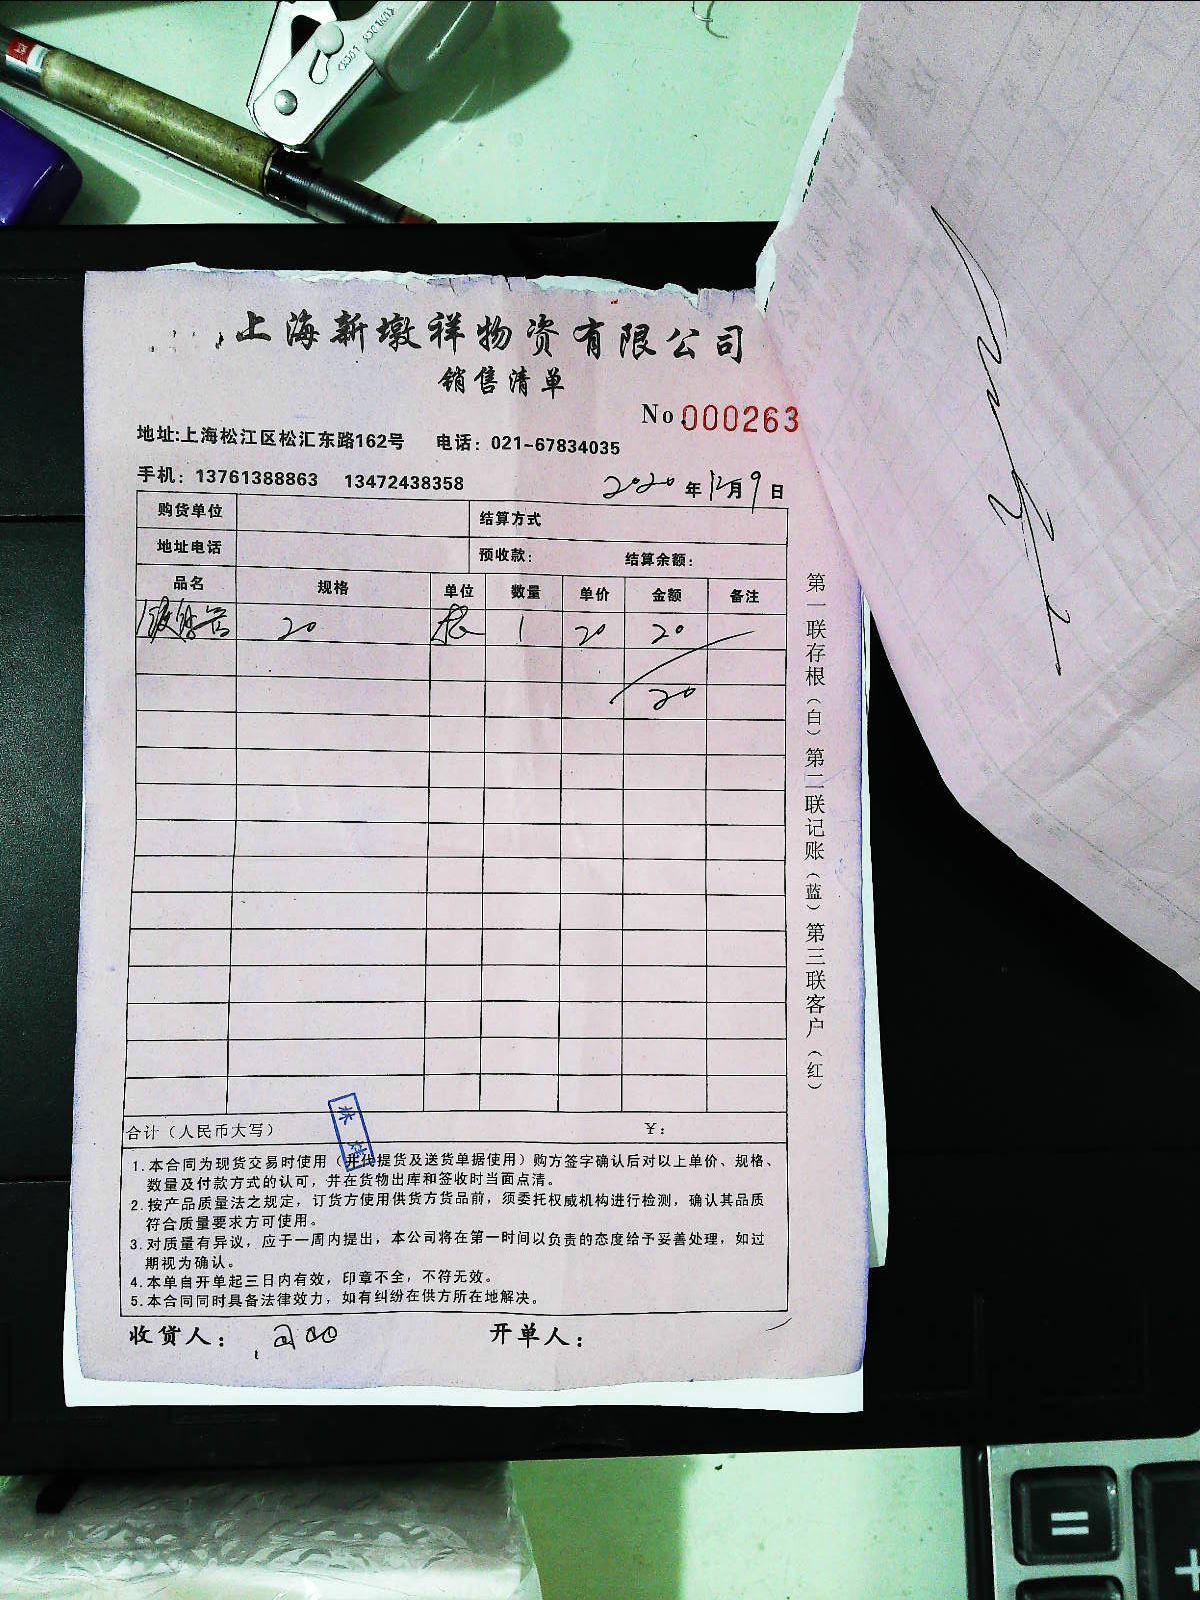 上海新墩祥物资有限公司
销售清单
No.000263
地址:上海松江区松汇东路162号 电话：021-67834035
手机：13761388863 13472438358
2020年12月9日
购货单位 结算方式
地址电话 预收款： 结算余额：
品名 规格 单位 数量 单价 金额 备注
20 根 1 20 20
20
合计（人民币大写） ￥：
1.本合同为现货交易时使用（并代提货及送货单据使用）购方签字确认后对以上单价、规格、
数量及付款方式的认可，并在货物出库和签收时当面点清。
2.按产品质量法之规定，订货方使用供货方货品前，须委托权威机构进行检测，确认其品质
符合质量要求方可使用。
3.对质量有异议，应于一周内提出，本公司将在第一时间以负责的态度给予妥善处理，如过
期视为确认。
4.本单自开单起三日内有效，印章不全，不符无效。
5.本合同同时具备法律效力，如有纠纷在供方所在地解决。
收货人： 开单人：
第一联存根（白）第二联记账（蓝）第三联客户（红）
=
+